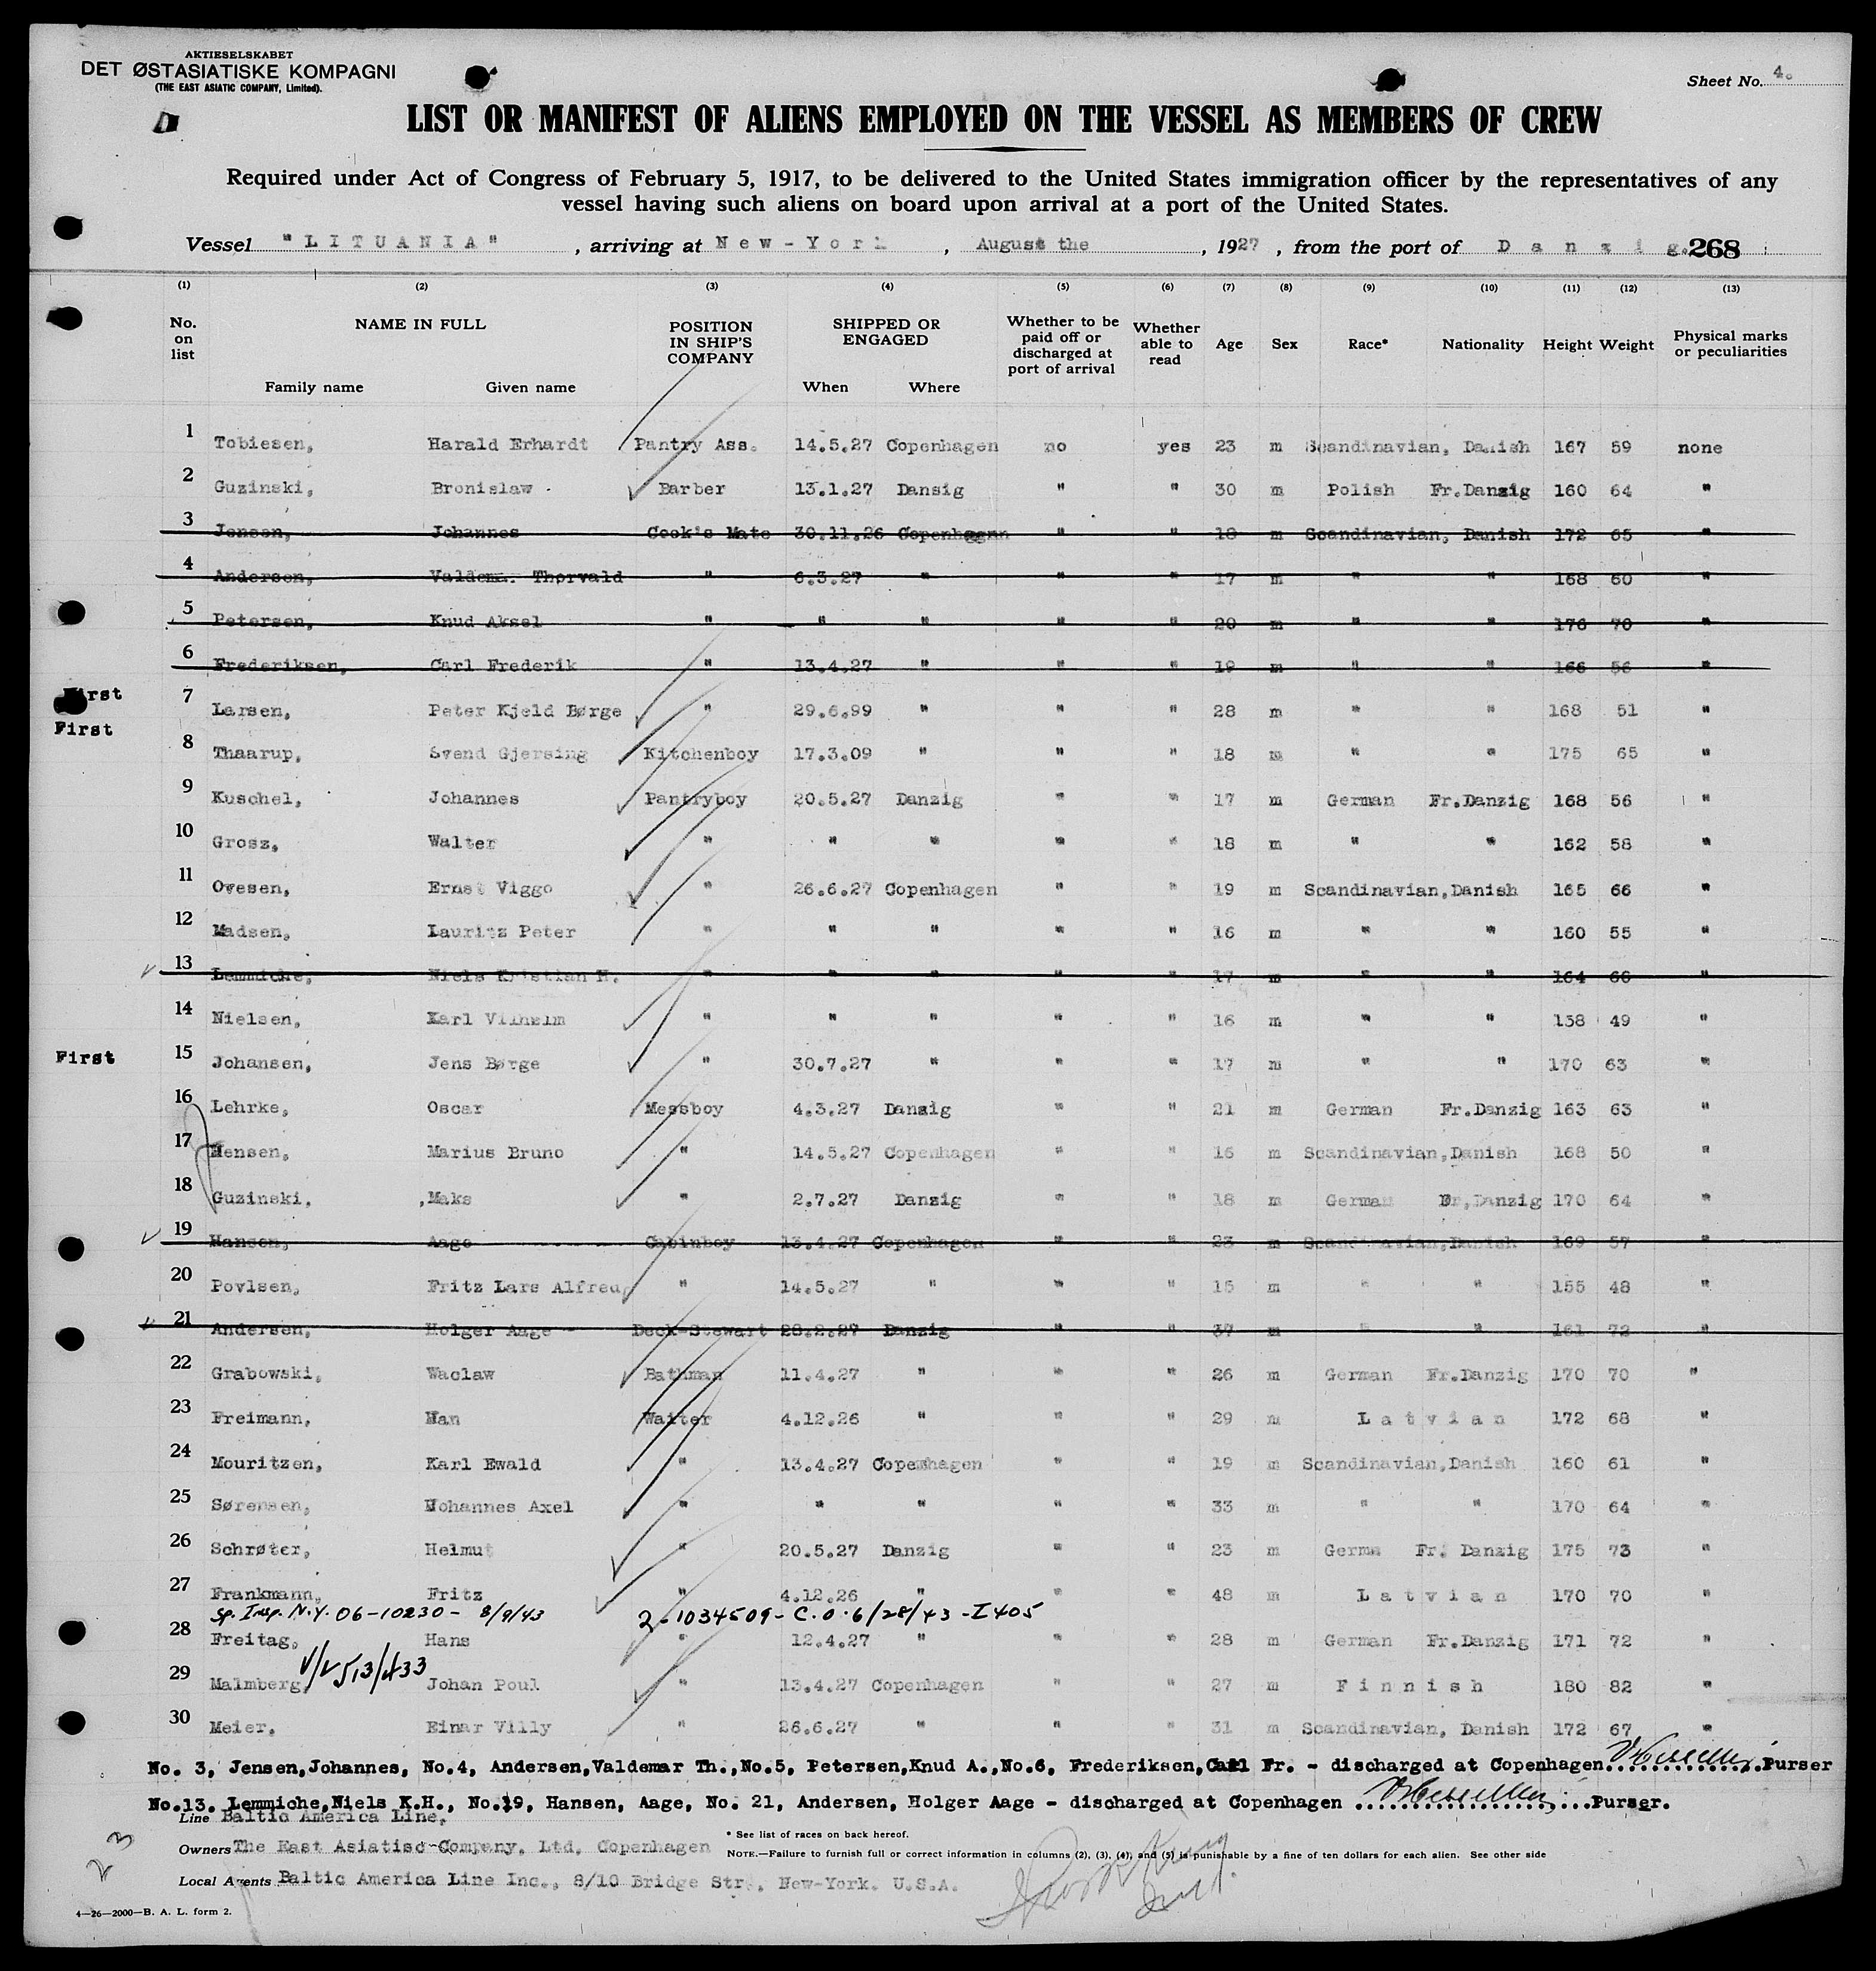 AKTIESELSKABET
DET ØSTASIATISKE KOMPAGNI
(THE EAST ASIATIC COMPANY, Limited).
Sheet No. 4.
LIST OR MANIFEST OF ALIENS EMPLOYED ON THE VESSEL AS MEMBERS OF CREW
Required under Act of Congress of February 5, 1917, to be delivered to the United States immigration officer by the representatives of any
vessel having such aliens on board upon arrival at a port of the United States.
Vessel "LITUANIA", arriving at New-York, August the, 1927, from the port of Danzig. 268
(1) (2) (3) (4) (5) (6) (7) (8) (9) (10) (11) (12) (13)
No. on list NAME IN FULL Family name Given name POSITION IN SHIP'S COMPANY SHIPPED OR ENGAGED When Where Whether to be paid off or discharged at port of arrival Whether able to read Age Sex Race* Nationality Height Weight Physical marks or peculiarities
1 Tobiesen, Harald Erhardt Pantry Ass. 14.5.27 Copenhagen no yes 23 m Scandinavian, Danish 167 59 none
2 Guzinski, Bronislaw Barber 13.1.27 Dansig " " 30 m Polish Fr.Danzig 160 64 "
3 Jensen, Johannes Cook's Mate 30.11.26 Copenhagen " " 18 m Scandinavian, Danish 172 65 "
4 Andersen, Valdemar Thorvald " 6.3.27 " " " 17 m " " 168 60 "
5 Petersen, Knud Aksel " " " " " 20 m " " 176 70 "
6 Frederiksen, Carl Frederik " 13.4.27 " " " 19 m " " 166 56 "
First 7 Larsen, Peter Kjeld Børge " 29.6.99 " " " 28 m " " 168 51 "
First 8 Thaarup, Svend Gjersing Kitchenboy 17.3.09 " " " 18 m " " 175 65 "
9 Kuschel, Johannes Pantryboy 20.5.27 Danzig " " 17 m German Fr.Danzig 168 56 "
10 Grosz, Walter " " " " " 18 m " " 162 58 "
11 Ovesen, Ernst Viggo " 26.6.27 Copenhagen " " 19 m Scandinavian,Danish 165 66 "
12 Madsen, Lauritz Peter " " " " " 16 m " " 160 55 "
13 Lemmiche, Niels Kristian H. " " " " " 17 m " " 164 60 "
14 Nielsen, Karl Vilhelm " " " " " 16 m " " 138 49 "
First 15 Johansen, Jens Børge " 30.7.27 " " " 17 m " " 170 63 "
16 Lehrke, Oscar Messboy 4.3.27 Danzig " " 21 m German Fr.Danzig 163 63 "
17 Hensen, Marius Bruno " 14.5.27 Copenhagen " " 16 m Scandinavian,Danish 168 50 "
18 Guzinski, Maks " 2.7.27 Danzig " " 18 m German Fr,Danzig 170 64 "
19 Hansen, Aage Cabinboy 13.4.27 Copenhagen " " 23 m Scandinavian,Danish 169 57 "
20 Povlsen, Fritz Lars Alfred, " 14.5.27 " " " 15 m " " 155 48 "
21 Andersen, Holger Aage Deck-Stewart 28.2.27 Danzig " " 37 m " " 161 72 "
22 Grabowski, Waclaw Bathman 11.4.27 " " " 26 m German Fr.Danzig 170 70 "
23 Freimann, Han Waiter 4.12.26 " " " 29 m Latvian 172 68 "
24 Mouritzen, Karl Ewald " 13.4.27 Copenhagen " " 19 m Scandinavian,Danish 160 61 "
25 Sørensen, Johannes Axel " " " " " 33 m " " 170 64 "
26 Schrøter, Helmut " 20.5.27 Danzig " " 23 m Germa Fr. Danzig 175 73 "
27 Frankmann, Fritz " 4.12.26 " " " 48 m Latvian 170 70 "
Sp. Insp. N.Y. 06-10230 - 8/9/43 2-1034509 - C.O. 6/28/43 - I 405
28 Freitag, Hans " 12.4.27 " " " 28 m German Fr.Danzig 171 72 "
29 Malmberg, Johan Poul " 13.4.27 Copenhagen " " 27 m Finnish 180 82 "
30 Meier, Einar Villy " 26.6.27 " " " 31 m Scandinavian, Danish 172 67 "
No. 3, Jensen,Johannes, No.4, Andersen,Valdemar Th.,No.5, Petersen,Knud A.,No.6, Frederiksen,Carl Fr. - discharged at Copenhagen Purser
No.13. Lemmiche,Niels K.H., No.19, Hansen, Aage, No. 21, Andersen, Holger Aage - discharged at Copenhagen Purser.
Line Baltic America Line,
* See list of races on back hereof.
Owners The East Asiatisc-Company, Ltd, Copenhagen
NOTE.—Failure to furnish full or correct information in columns (2), (3), (4), and (5) is punishable by a fine of ten dollars for each alien. See other side
Local Agents Baltic America Line Inc., 8/10 Bridge Str., New-York. U.S.A.
23
4—26—2000—B. A. L. form 2.